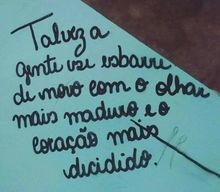 Talvez a
gente se esbarre
de novo com o olhar
mais maduro e o
coração mais
decidido.